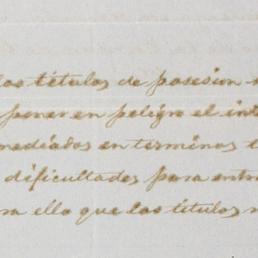 los títulos de posesion
poner en peligro el int
mediados en terminos t
dificultades para entr
ra ello que los títulos n